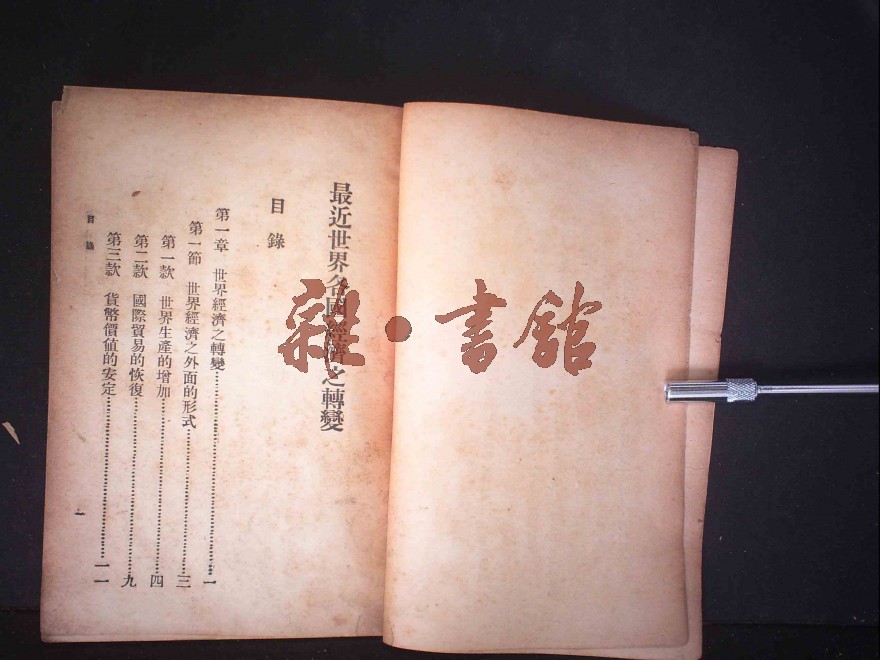 最近世界各國經濟之轉變
目錄
第一章 世界經濟之轉變……一
第一節 世界經濟之外面的形式……三
第一款 世界生產的增加……四
第二款 國際貿易的恢復……九
第三款 貨幣價値的安定……一一
目錄
一
雜·書館